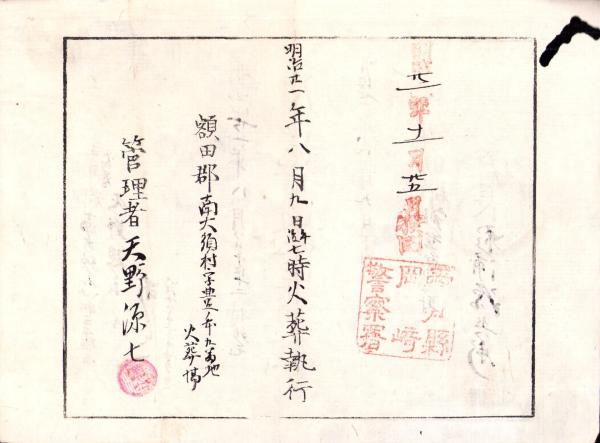 明治廿一年十一月廿五日
愛知縣
岡崎
警察署
明治廿一年八月九日午后七時火葬執行
額田郡南大須村字豊年九番地
火葬場
管理者 天野源七